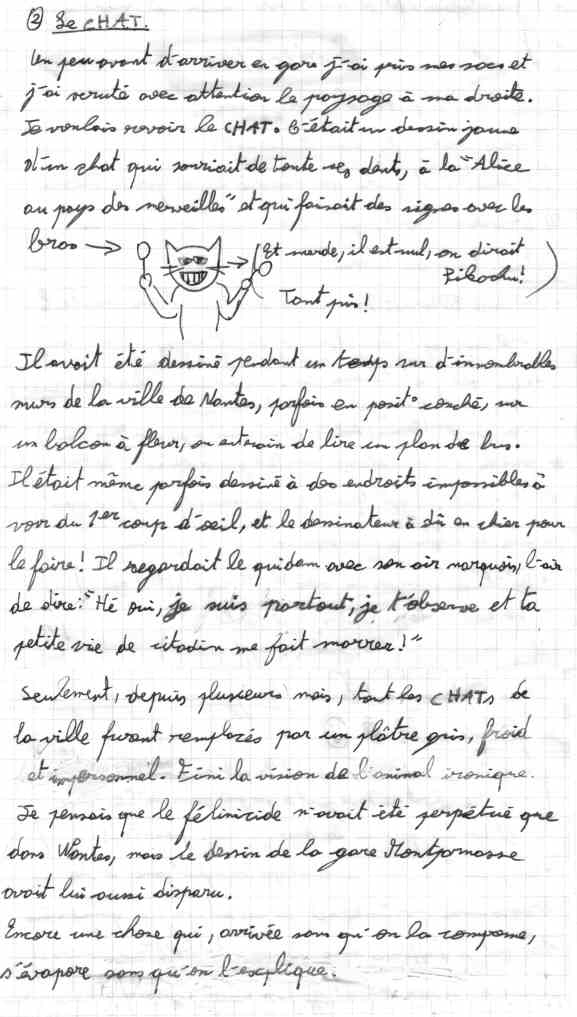 ② Le CHAT.
Un peu avant d'arriver en gare j'ai pris mes sacs et
j'ai scruté avec attention le paysage à ma droite.
Je voulais revoir le CHAT. C'était un dessin jaune
d'un chat qui souriait de toute ses dents, à la "Alice
au pays des merveilles" et qui faisait des signes avec les
bras → → (Et merde, il est nul, on dirait
Pikachu!)
Tant pis!
Il avait été dessiné pendant un temps sur d'innombrables
murs de la ville de Nantes, parfois en posit° couché, sur
un balcon à fleur, ou entrain de lire un plan de bus.
Il était même parfois dessiné à des endroits impossibles à
voir du 1er coup d'oeil, et le dessinateur a dû en chier pour
le faire! Il regardait le quidam avec son air narquois, l'air
de dire: "Hé oui, je suis partout, je t'observe et ta
petite vie de citadin me fait marrer!"
Seulement, depuis plusieurs mois, tout les CHATs de
la ville furent remplacés par un plâtre gris, froid
et impersonnel. Fini la vision de l'animal ironique.
Je pensais que le félinicide n'avait été perpétué que
dans Nantes, mais le dessin de la gare Montparnasse
avait lui aussi disparu.
Encore une chose qui, arrivée sans qu'on la comprenne,
s'évapore sans qu'on l'explique.